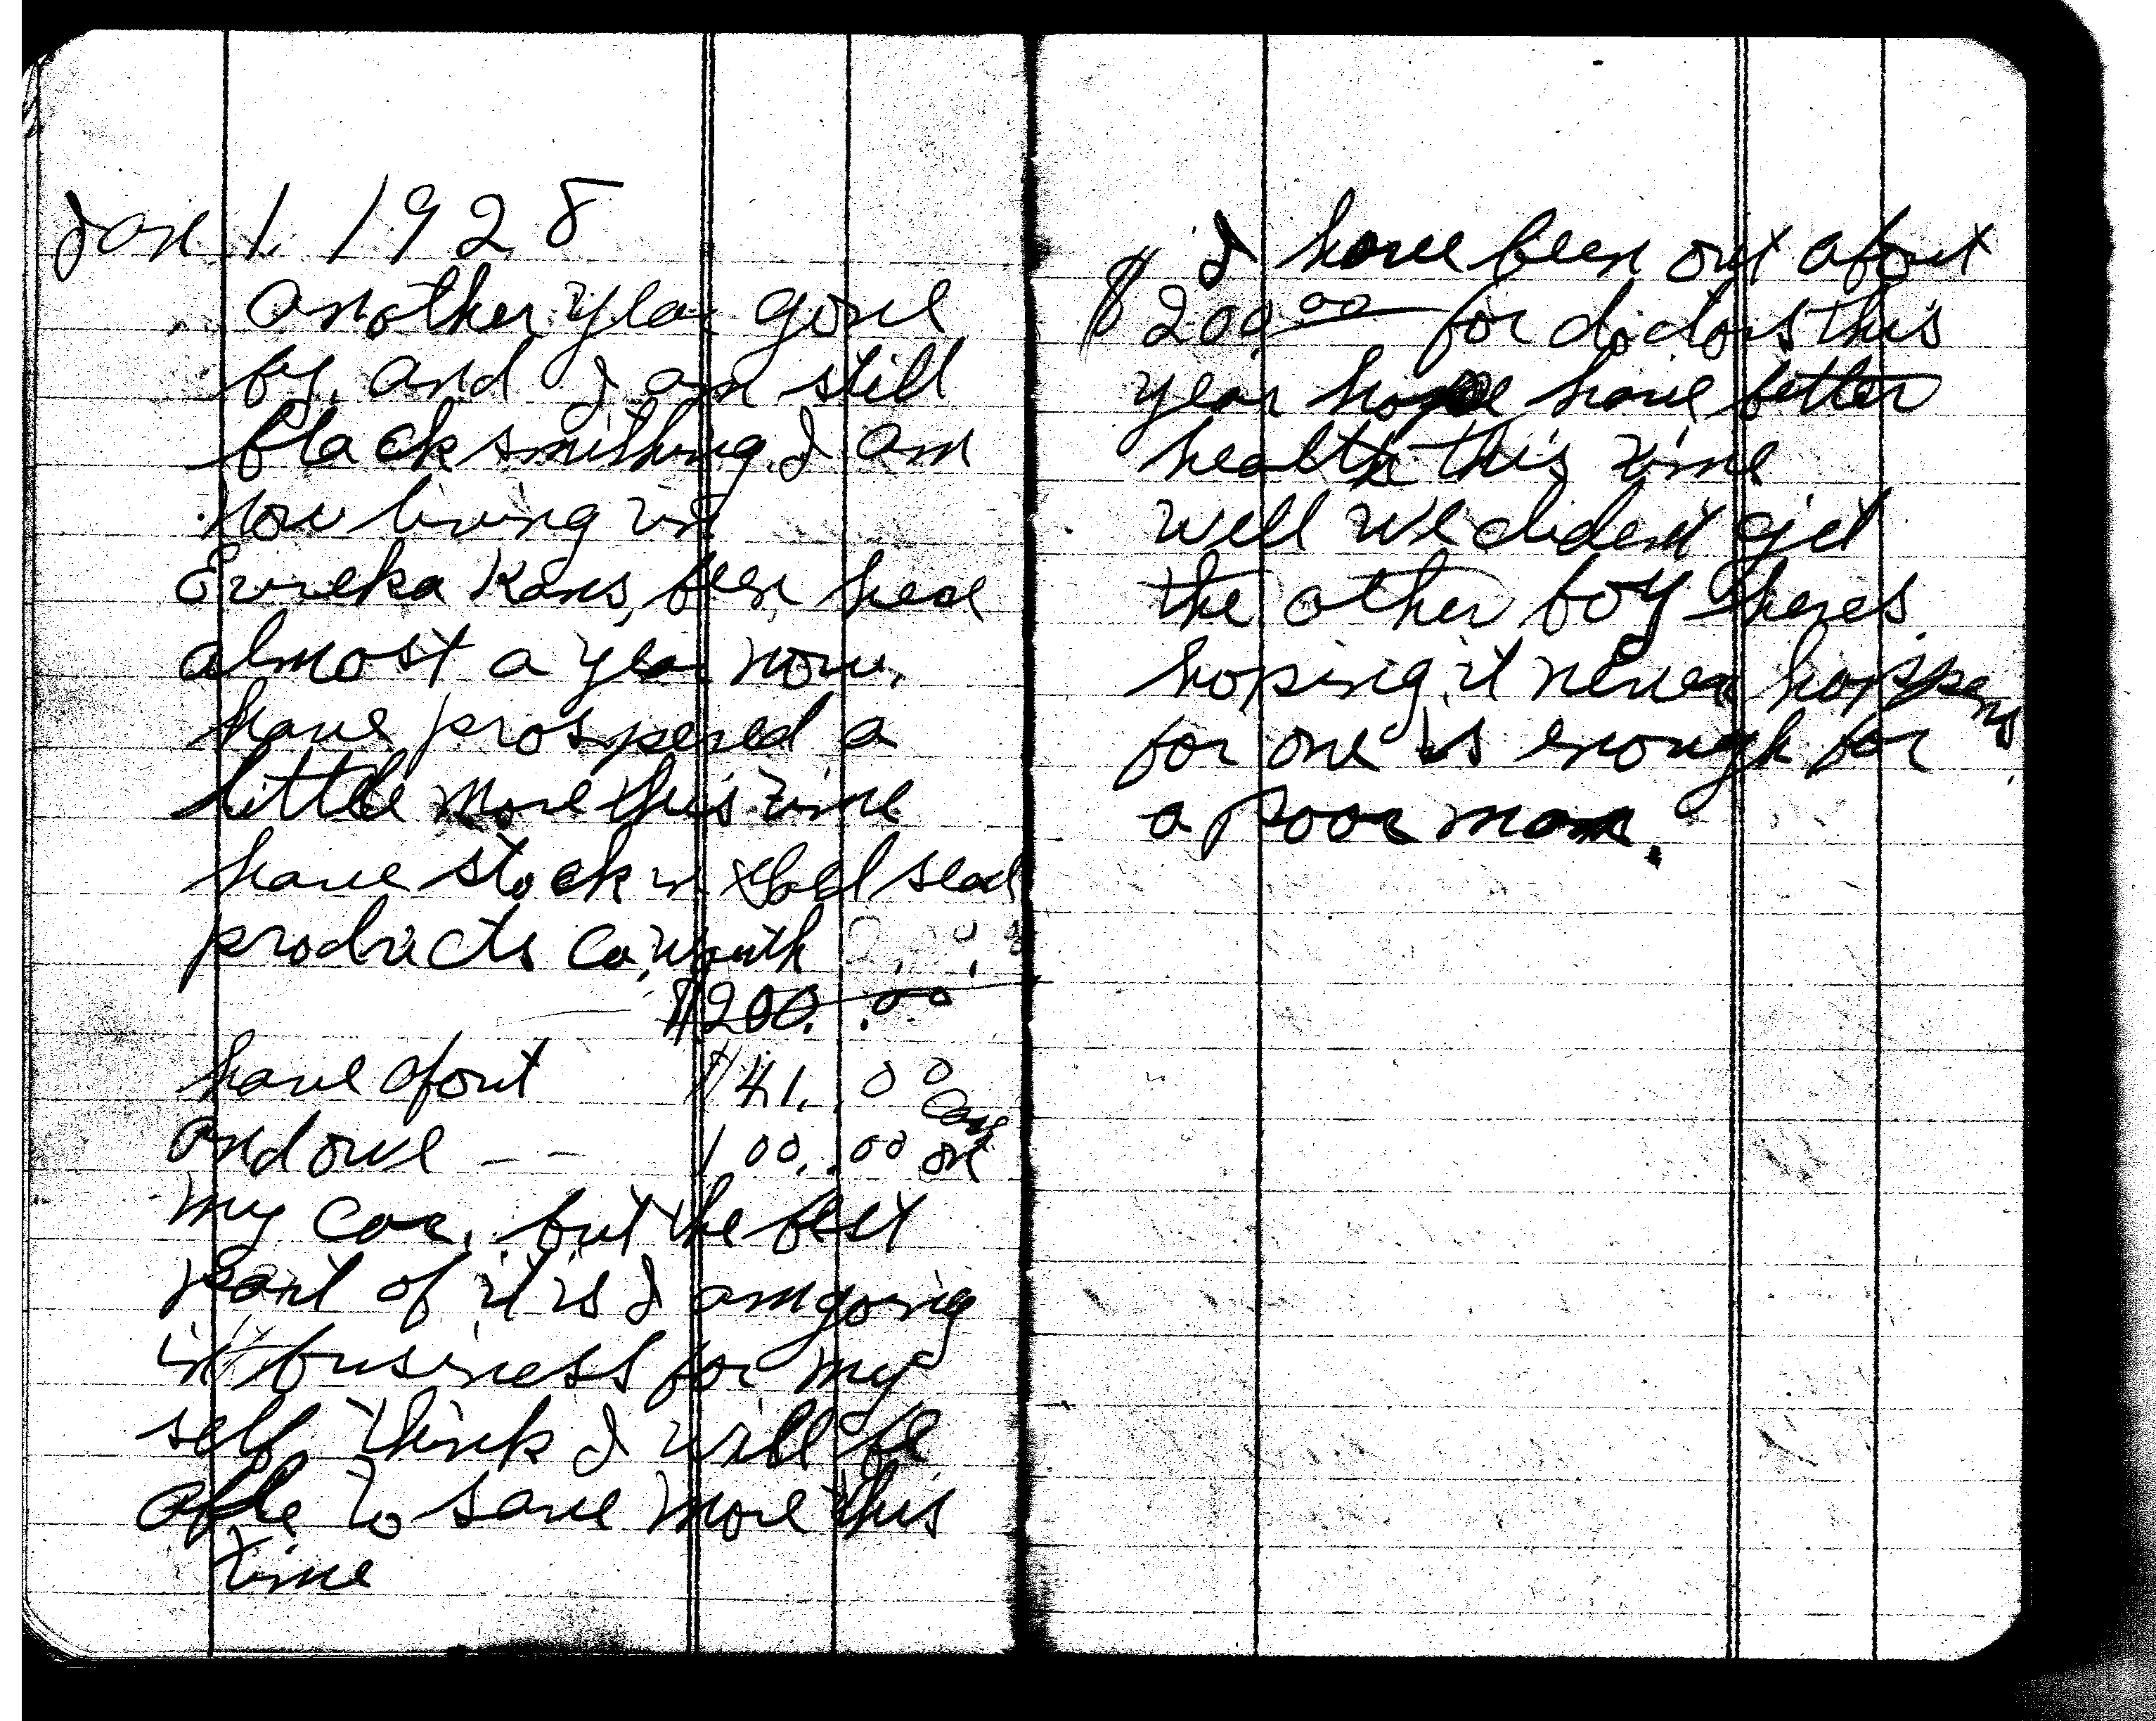 Jan 1. 1928
another year gone
by. and I am still
blacksmithing. I am
now living in
Eureka Kans, been hear
almost a year now.
have prospered a
little more this time
have stock in Gold Seal
products Co, worth
$200.00
have about $41.00 Cash
and owe -- 100.00 on
my car. but the best
part of it is I am going
in business for my
self, think I will be
able to save more this
time
I have been out about
$200.00 for doctors this
year hope have better
health this time
well we dident get
the other boy heres
hoping it never happens
for one is enough for
a poor man.